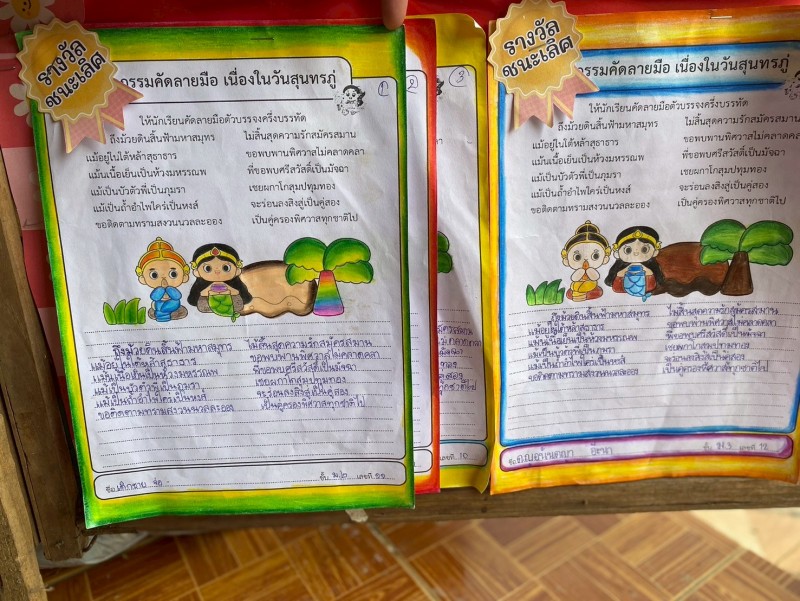 รางวัล
ชนะเลิศ
กรรมคัดลายมือ เนื่องในวันสุนทรภู่
ให้นักเรียนคัดลายมือตัวบรรจงครึ่งบรรทัด
ถึงม้วยดินสิ้นฟ้ามหาสมุทร ไม่สิ้นสุดความรักสมัครสมาน
แม้อยู่ในใต้หล้าสุธาธาร ขอพบพานพิศวาสไม่คลาดคลา
แม้นเนื้อเย็นเป็นห้วงมหรรณพ พี่ขอพบศรีสวัสดิ์เป็นมัจฉา
แม้เป็นบัวตัวพี่เป็นภุมรา เชยผกาโกสุมปทุมทอง
แม้เป็นถ้ำอำไพใคร่เป็นหงส์ จะร่อนลงสิงสู่เป็นคู่สอง
ขอติดตามทรามสงวนนวลละออง เป็นคู่ครองพิศวาสทุกชาติไป
ถึงม้วยดินสิ้นฟ้ามหาสมุทร ไม่สิ้นสุดความรักสมัครสมาน
แม้อยู่ในใต้หล้าสุธาธาร ขอพบพานพิศวาสไม่คลาดคลา
แม้นเนื้อเย็นเป็นห้วงมหรรณพ พี่ขอพบศรีสวัสดิ์เป็นมัจฉา
แม้เป็นบัวตัวพี่เป็นภุมรา เชยผกาโกสุมปทุมทอง
แม้เป็นถ้ำอำไพใคร่เป็นหงส์ จะร่อนลงสิงสู่เป็นคู่สอง
ขอติดตามทรามสงวนนวลละออง เป็นคู่ครองพิศวาสทุกชาติไป
ชื่อ เด็กชาย ชั้น เลขที่
1
2
3
เลขที่ 10
รางวัล
ชนะเลิศ
กรรมคัดลายมือ เนื่องในวันสุนทรภู่
ให้นักเรียนคัดลายมือตัวบรรจงครึ่งบรรทัด
ถึงม้วยดินสิ้นฟ้ามหาสมุทร ไม่สิ้นสุดความรักสมัครสมาน
แม้อยู่ในใต้หล้าสุธาธาร ขอพบพานพิศวาสไม่คลาดคลา
แม้นเนื้อเย็นเป็นห้วงมหรรณพ พี่ขอพบศรีสวัสดิ์เป็นมัจฉา
แม้เป็นบัวตัวพี่เป็นภุมรา เชยผกาโกสุมปทุมทอง
แม้เป็นถ้ำอำไพใคร่เป็นหงส์ จะร่อนลงสิงสู่เป็นคู่สอง
ขอติดตามทรามสงวนนวลละออง เป็นคู่ครองพิศวาสทุกชาติไป
ถึงม้วยดินสิ้นฟ้ามหาสมุทร ไม่สิ้นสุดความรักสมัครสมาน
แม้อยู่ใต้หล้าสุธาธาร ขอพบพานพิศวาสไม่คลาดคลา
แม้นเนื้อเย็นเป็นห้วงมหรรณพ พี่ขอพบศรีสวัสดิ์เป็นมัจฉา
แม้เป็นบัวตัวพี่เป็นภุมรา เชยผกาโกสุมปทุมทอง
แม้เป็นถ้ำอำไพใคร่เป็นหงส์ จะร่อนลงสิงสู่เป็นคู่สอง
ขอติดตามทรามสงวนนวลละออง เป็นคู่ครองพิศวาสทุกชาติไป
ชื่อ ชั้น ม.3 เลขที่ 12